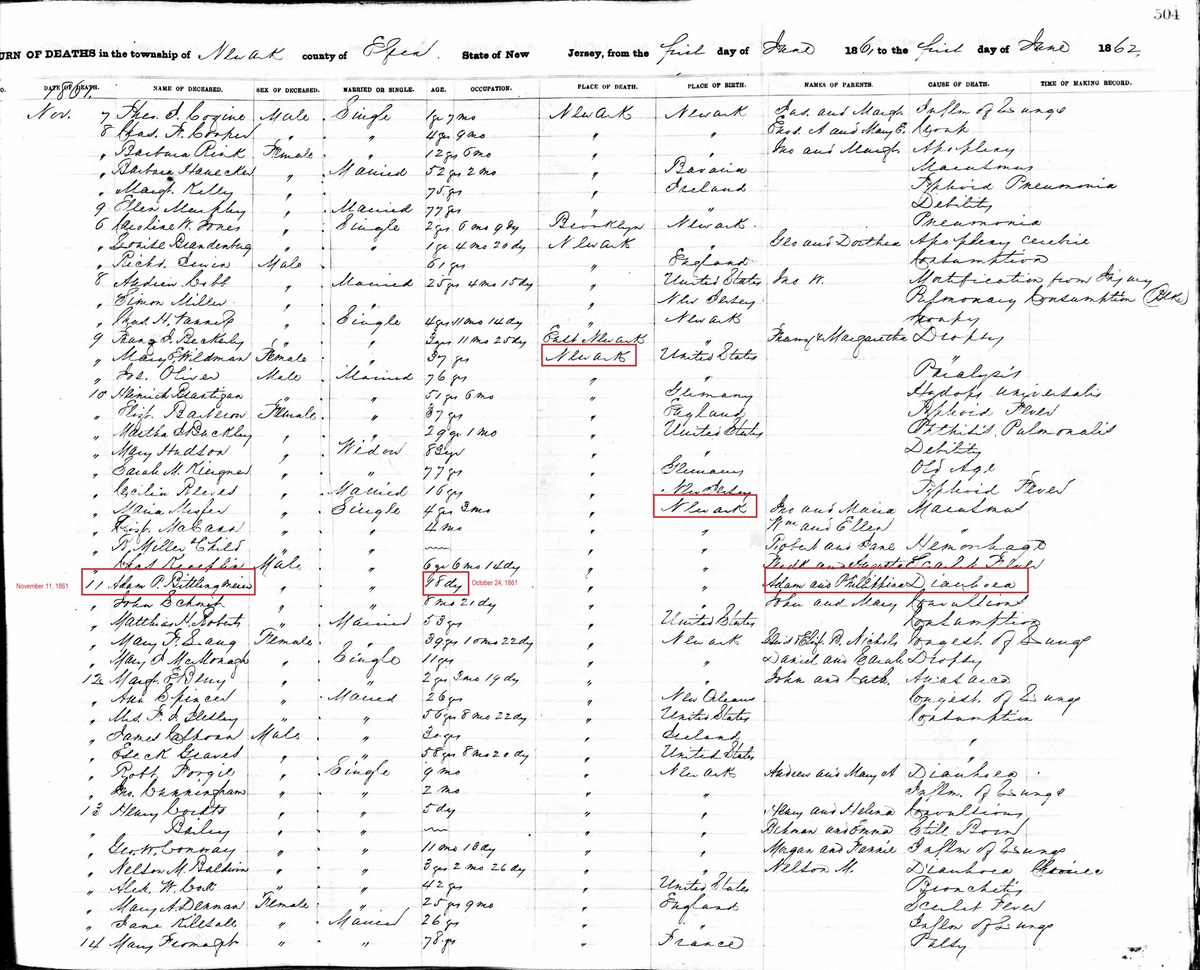 504
URN OF DEATHS in the township of Newark county of Essex State of New Jersey, from the first day of June 1861, to the first day of June 1862
O. DATE OF DEATH. NAME OF DECEASE. SEX OF DECEASED. MARRIED OR SINGLE. AGE. OCCUPATION. PLACE OF DEATH. PLACE OF BIRTH. NAMES OF PARENTS. CAUSE OF DEATH. TIME OF MAKING RECORD.
1861.
Nov. 7 Theo. S. Male Single 1 yr 7 mo Newark Newark Jas. and Margt. Inflm of Lungs
8 Chas. F. Cooper " " 4 yrs 9 mo " " Chas. A and Mary E. Croup
" Barbara Rink Female " 12 yrs 6 mo " " Jno and Margt Apoplexy
" Barbara " Married 52 yrs 2 mo " Bavaria Marasmus
" Margt. Kelly " " 75 yrs " Ireland Typhoid Pneumonia
9 Ellen Murphy " Married 77 yrs " " Debility
6 Caroline W. Jones " Single 2 yrs 6 mo 9 dy Brooklyn Newark Pneumonia
" Louise Brandenburg " " 1 yr 4 mo 20 dy Newark " Geo and Dorthea Apoplexy
" Richd. Lewis Male " 61 yrs " England Consumption
8 Andrew Cobb " Married 25 yrs 4 mo 15 dy " United States Jno W. Mortification from Injury
" Simon Miller " " " New Jersey Pulmonary Consumption
" Chas. H. " Single 4 yrs 11 mo 14 dy " Newark
9 Franz J. Beckerly " " 3 yrs 11 mo 25 dy East Newark " Franz & Margaretha Dropsy
" Mary E. Wildman Female " 37 yrs Newark United States "
" Jos. Oliver Male Married 76 yrs " " Paralysis
10 Heinrich " " 51 yrs 6 mo " Germany Hydops universalis
" Eliz. Female " 37 yrs " England Typhoid Fever
" Martha Buckley " " 29 yr 1 mo " United States Phthisis Pulmonalis
" Mary Hudson " Widow 83 yr " Debility
" Sarah M. " " 77 yrs " Germany Old Age
" Cecilia Reeves " Married 16 yrs " New Jersey Typhoid Fever
" Maria " Single 4 yrs 3 mo " Newark Jno and Maria Marasmus
" McCann " " 4 mo " " Wm and Ellen "
" R. Miller's Child " " " " Robert and Jane Hemorhage
" Male " 6 yrs 6 mo 14 dy " " Fredk and Augusta Scarlet Fever
November 11, 1861 11 Adam P. Bittlingmeier " " 98 dy October 24, 1861 " " Adam and Phillippina Diarrhoea
" John Schmidt " " 8 mo 21 dy " " John and Mary Convultions
" Matthias H. Roberts " Married 53 yrs " United States Consumption
" Mary F. Female " 39 yrs 10 mo 22 dy " Newark Nichols Congest. of Lungs
" Mary McMonagh " Single 11 yrs " " Daniel and Sarah Dropsy
12 Margt. E. " " 2 yrs 3 mo 19 dy " " John and Cath. Anasarca
" Ann Spencer " Married 26 yrs " New Orleans Congest. of Lungs
" Mrs. F. J. " " 56 yrs 8 mo 22 dy " United States Consumption
" James Calhoun Male " 30 yrs " Ireland "
" Graves " " 58 yrs 8 mo 20 dy " United States "
" Robt. Forgie " Single 9 mo " Newark Andrew and Mary A Diarrhoea
" Jno. Cunningham " " 2 mo " " Inflm. of Lungs
13 Henry " " 5 dy " " Henry and Helena Convultions
" Bailey " " " " and Emma Still Born
" Geo. W. Conway " " 11 mo 10 dy " " and Fannie Inflm of Lungs
" Nelson M. Baldwin " " 3 yrs 2 mo 26 dy " " Nelson M. Diarrhoea Chronic
" Alex. W. " " 42 yrs " United States
" Mary A. Denman Female " 25 yrs 9 mo " England Scarlet Fever
" Jane " Married 26 yrs " " Inflm of Lungs
14 Mary " " 78 yrs " France Palsy